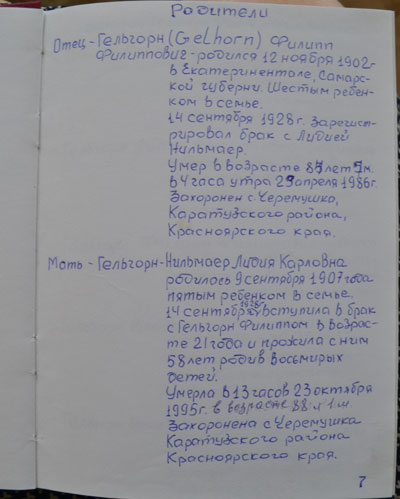 Родители
Отец - Гельгорн (Gelhorn) Филипп
Филиппович - родился 12 ноября 1902г
в Екатеринентале, Самарс-
кой губерни. Шестым ребен-
ком в семье.
14 сентября 1928г. Зарегист-
рировал брак с Лидией
Нильмаер.
Умер в возрасте 83 лет 5м.
в 4 часа утра 29 апреля 1986г.
Захоронен с. Черемушка,
Каратузского района,
Красноярского края.
Мать - Гельгорн-Нильмаер Лидия Карловна
родилась 9 сентября 1907 года
пятым ребенком в семье.
14 сентября 1928г вступила в брак
с Гельгорн Филиппом в возрас-
те 21 года и прожила с ним
58 лет родив восьмирых
детей.
Умерла в 13 часов 23 октября
1995г. в возрасте 88 л 1 м.
Захоронена с Черемушка
Каратузского района
Красноярского края.
7